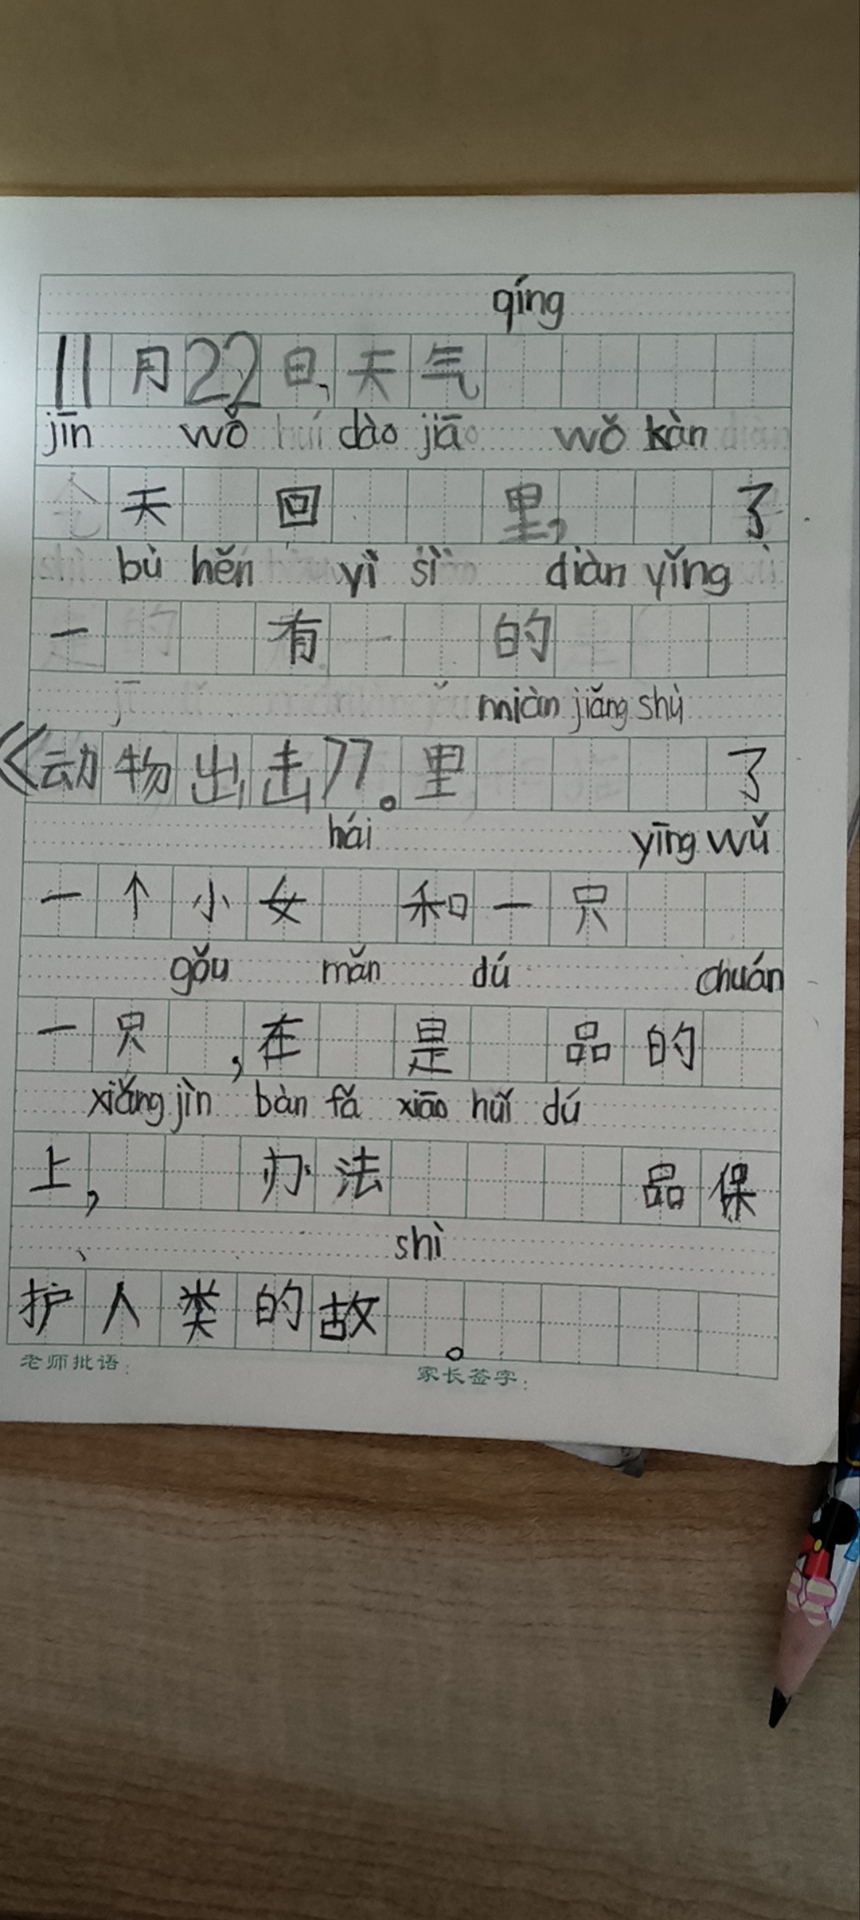 qíng
11月22日、天气
jīn wǒ huí dào jiā wǒ kàn
天 回 里, 了
bù hěn yì sì diàn yǐng
一 有 的
miàn jiǎng shù
《动物出击》。里 了
hái yīng wǔ
一个小女 和一只
gǒu mǎn dú chuán
一只 ,在 是 品的
xiǎng jìn bàn fǎ xiāo huǐ dú
上, 办法 品保
shì
护人类的故 。
老师批语: 家长签字: